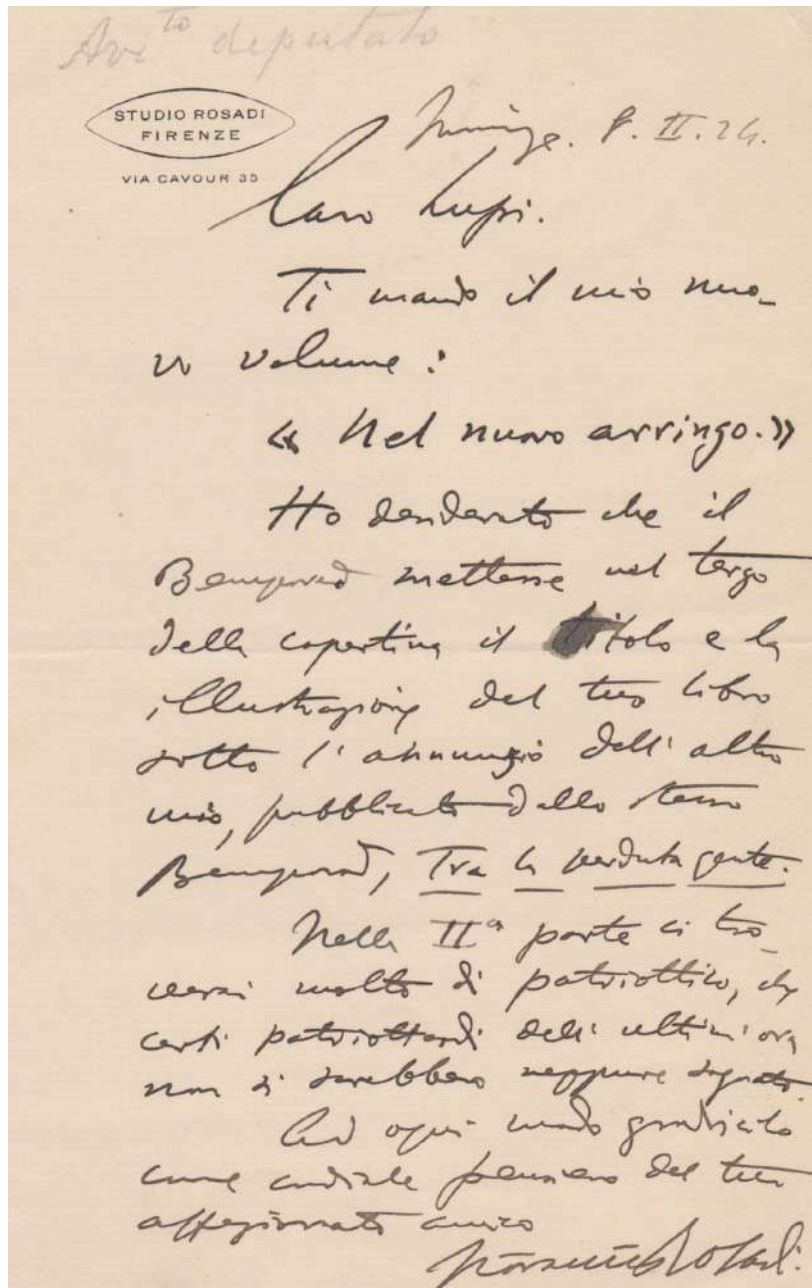 Avv.to deputato
STUDIO ROSADI
FIRENZE
VIA CAVOUR 35
Firenze. 8. II. 24.
Caro Lupi.
Ti mando il mio nuo-
vo volume:
« Nel nuovo arringo.»
Ho desiderato che il
Bemporad mettesse nel tergo
della copertina il titolo e la
illustrazione del tuo libro
sotto l'annunzio dell'altro
mio, pubblicato dallo stesso
Bemporad, Tra la perduta gente.
Nella IIa parte ci tro-
verai molto di patriottico, che
certi patriottardi dell'ultim'ora
non si sarebbero neppure sognato.
Ad ogni modo gradiscilo
come cordiale pensiero del tuo
affezionato amico
Rosadi.